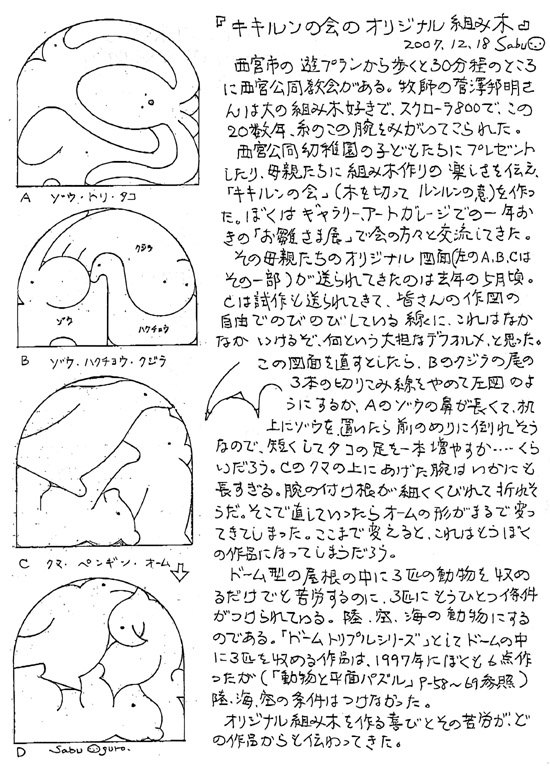 『キキルンの会のオリジナル組み木』
2007.12.18 Sabu
西宮市の遊プランから歩くと30分程のところ
に西宮公同教会がある。牧師の菅澤邦明さ
んは大の組み木好きで、スクローラ800で、この
20数年、糸のこの腕をみがいてこられた。
西宮公同幼稚園の子どもたちにプレゼント
したり、母親たちに組み木作りの楽しさを伝え、
「キキルンの会」(木を切ってルンルンの意)を作っ
た。ぼくはギャラリー、アートガレージでの一年お
きの「お雛さま展」で会の方々と交流してきた。
その母親たちのオリジナル図面(左のA,B,Cは
その一部)が送られてきたのは去年の5月頃。
Cは試作も送られてきて、皆さんの作図の
自由でのびのびしている線に、これはなか
なかいけるぞ、何という大胆なデフォルメ、と思った。
この図面を直すとしたら、Bのクジラの尾の
3本の切りこみ線をやめて左図のよ
うにするか、Aのゾウの鼻が長くて、机
上にゾウを置いたら前のめりに倒れそう
なので、短くしてタコの足を一本増やすか……くら
いだろう。Cのクマの上にあげた腕はいかにも
長すぎる。腕の付け根が細くくびれて折れそ
うだ。そこで直していったらオームの形がまるで変っ
てきてしまった。ここまで変えると、これはもうぼく
の作品になってしまうだろう。
ドーム型の屋根の中に3匹の動物を収め
るだけでも苦労するのに、3匹にもうひとつ条件
がつけられている。陸、空、海の動物にする
のである。「ドームトリプルシリーズ」としてドームの中
に3匹を収める作品は、1997年にぼくも6点作
ったが(「動物と平面パズル」P-58~69参照)
陸、海、空の条件はつけなかった。
オリジナル組み木を作る喜びとその苦労が、ど
の作品からも伝わってきた。
A ゾウ・トリ・タコ
クジラ
ゾウ
ハクチョウ
B ゾウ・ハクチョウ・クジラ
C クマ・ペンギン・オーム
D Sabu Oguro.